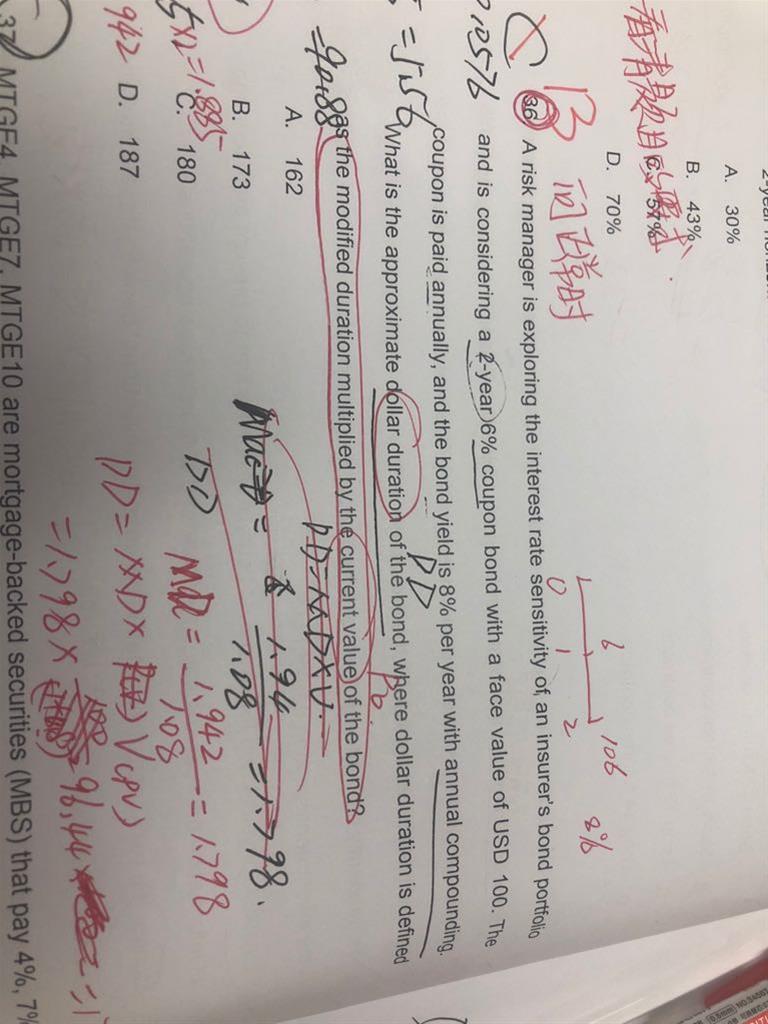 2-year
A. 30%
B. 43%
C. 57%
D. 70%
看看题目的要求.
B
36 A risk manager is exploring the interest rate sensitivity of an insurer's bond portfolio
and is considering a 2-year 6% coupon bond with a face value of USD 100. The
coupon is paid annually, and the bond yield is 8% per year with annual compounding.
What is the approximate dollar duration of the bond, where dollar duration is defined
as the modified duration multiplied by the current value of the bond?
A. 162
B. 173
C. 180
D. 187
6 106 8%
0 1 2
= 5.56
= 90.88
DD
P0
DD = MD × V.
1.94
1.08
= 1.798.
DD
MD = 1.942
1.08
= 1.798
DD = MD × V (PV)
= 1.798 × 96.44
= 1.885
942
37 MTGE4, MTGE7, MTGE10 are mortgage-backed securities (MBS) that pay 4%, 7%